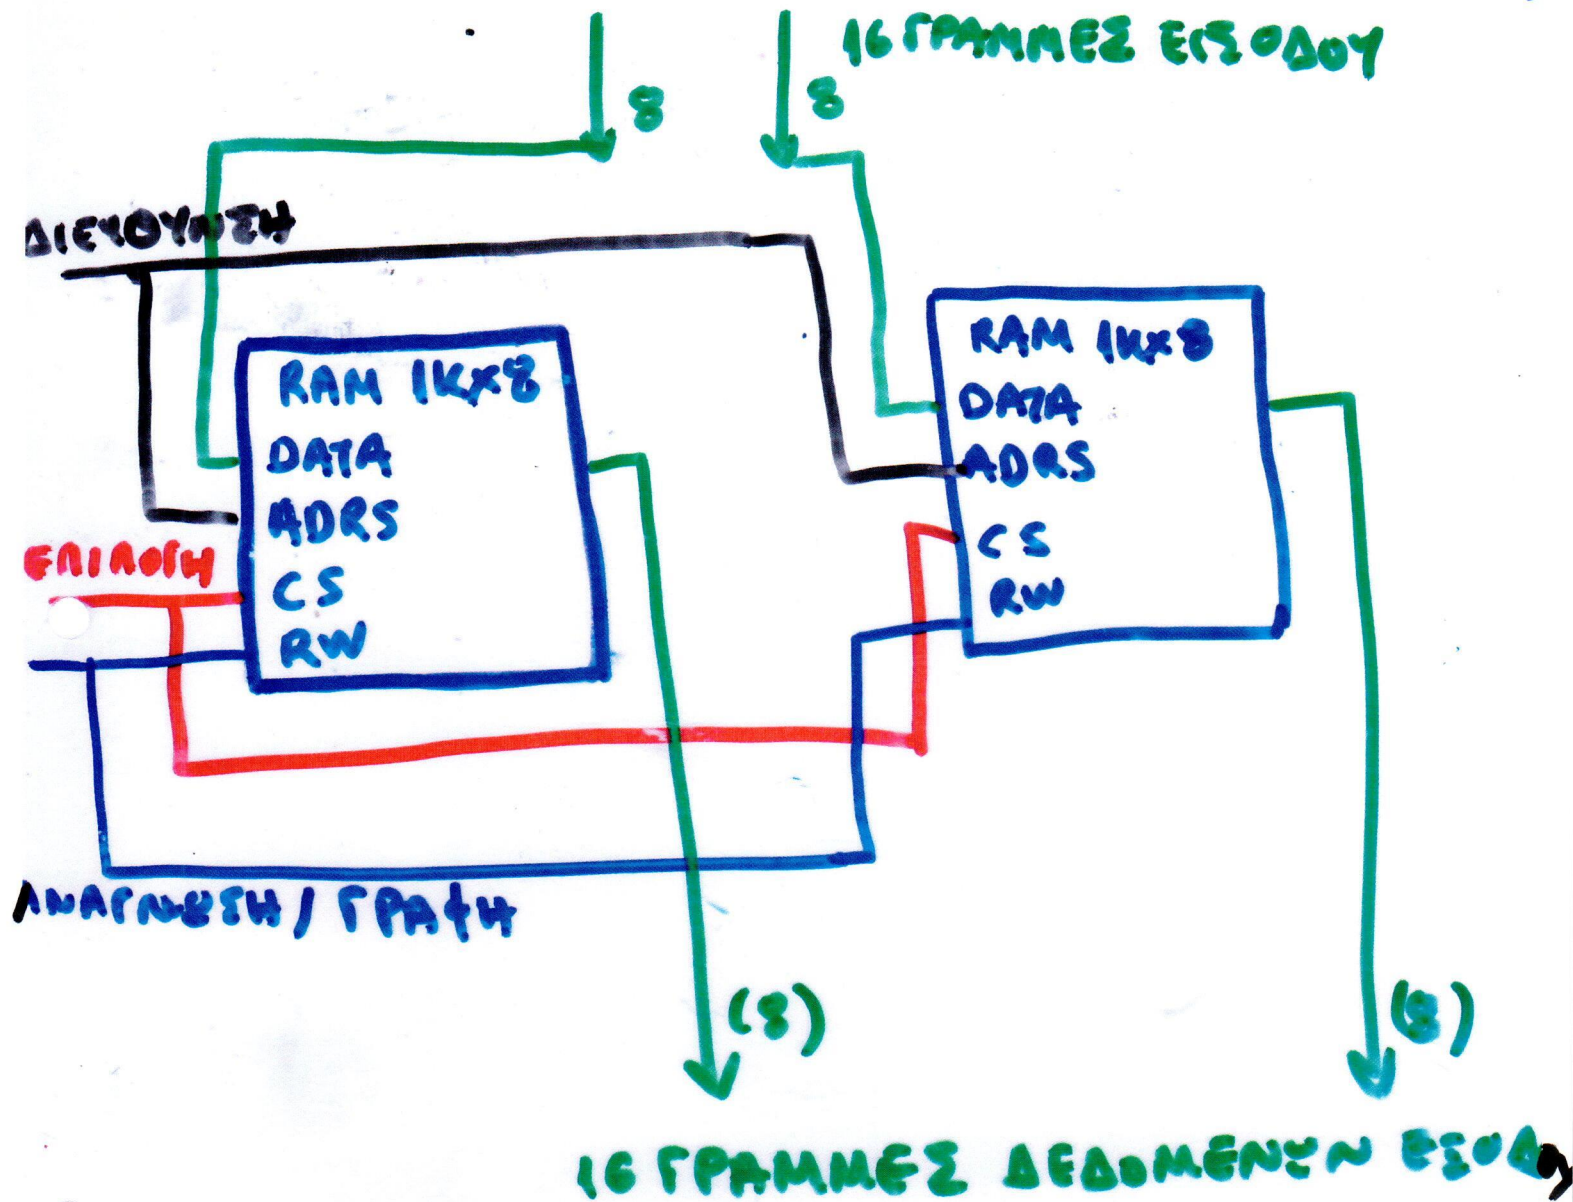 16 ΓΡΑΜΜΕΣ ΕΙΣΟΔΟΥ
8
8
ΔΙΕΥΘΥΝΣΗ
RAM 1K×8
DATA
ADRS
CS
RW
RAM 1K×8
DATA
ADRS
CS
RW
ΕΠΙΛΟΓΗ
ΑΝΑΓΝΩΣΗ / ΓΡΑΦΗ
(8)
(8)
16 ΓΡΑΜΜΕΣ ΔΕΔΟΜΕΝΩΝ ΕΞΟΔΟΥ